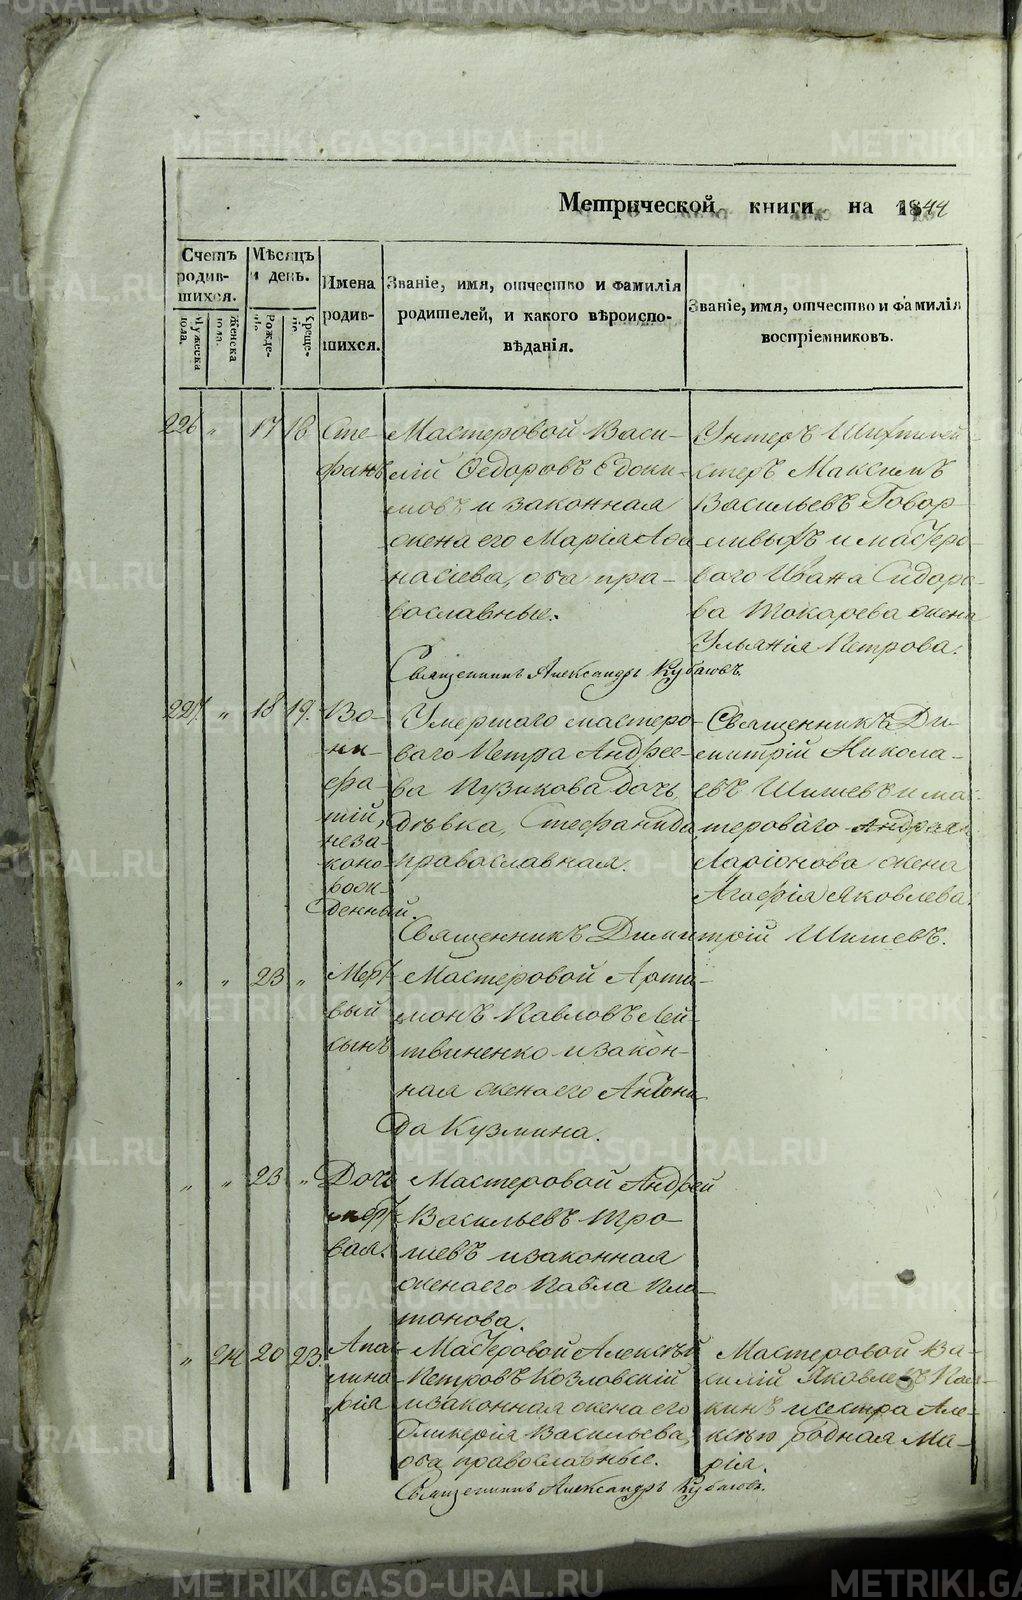 Метрической книги на 1844
Счетъ
родив-
шихся.
Мужеска
пола.
Женска
пола.
Мѣсяцъ
и день.
Рожде-
Креще-
Имена
родив-
шихся.
Званіе, имя, отчество и фамилія
родителей, и какого вѣроиспо-
вѣданія.
Званіе, имя, отчество и фамилія
воспріемниковъ.
226 " 17 18
Сте-
фанъ
Мастеровой Васи-
лій Ѳедоровъ Евдоки-
мовъ и законная
жена его Марія Аѳа
насіева, оба пра-
вославные.
Унтеръ Шихтмей-
стеръ Максимъ
Васильевъ Говор-
ливыхъ и мастеро-
ваго Ивана Сидоро-
ва Токарева жена
Ульянія Петрова.
Священникъ Александръ
227. " 18 19.
Во-
ни-
фа-
тій,
неза-
коно-
рож-
денный.
Умершаго мастеро-
ваго Петра Андрее-
ва Пузикова дочь
дѣвка, Стефанида
православная.
Священникъ Ди-
митрій Никола-
евъ Шишевъ и мас-
тероваго Андрея
Ларіонова жена
Агафія Яковлева.
Священникъ Димитрій Шишевъ.
" " 23 "
Мерт
вый
сынъ
Мастеровой Арти-
монъ Павловъ Лей-
твиненко и закон-
ная жена его Антони
да Кузмина.
" " 23 "
Дочь
мерт-
вая.
Мастеровой Андрей
Васильевъ Тро-
шевъ и законная
жена его Павла Пла-
тонова.
" 214 20 23.
Апа-
лина
рія
Мастеровой Алексѣй
Петровъ Козловскій
и законная жена его
Гликерія Васильева,
оба православные.
Мастеровой Ва-
силій Яковлевъ
кинъ и сестра Але-
ксѣю родная Ма-
рія.
Священникъ Александръ
METRIKI.GASO-URAL.RU